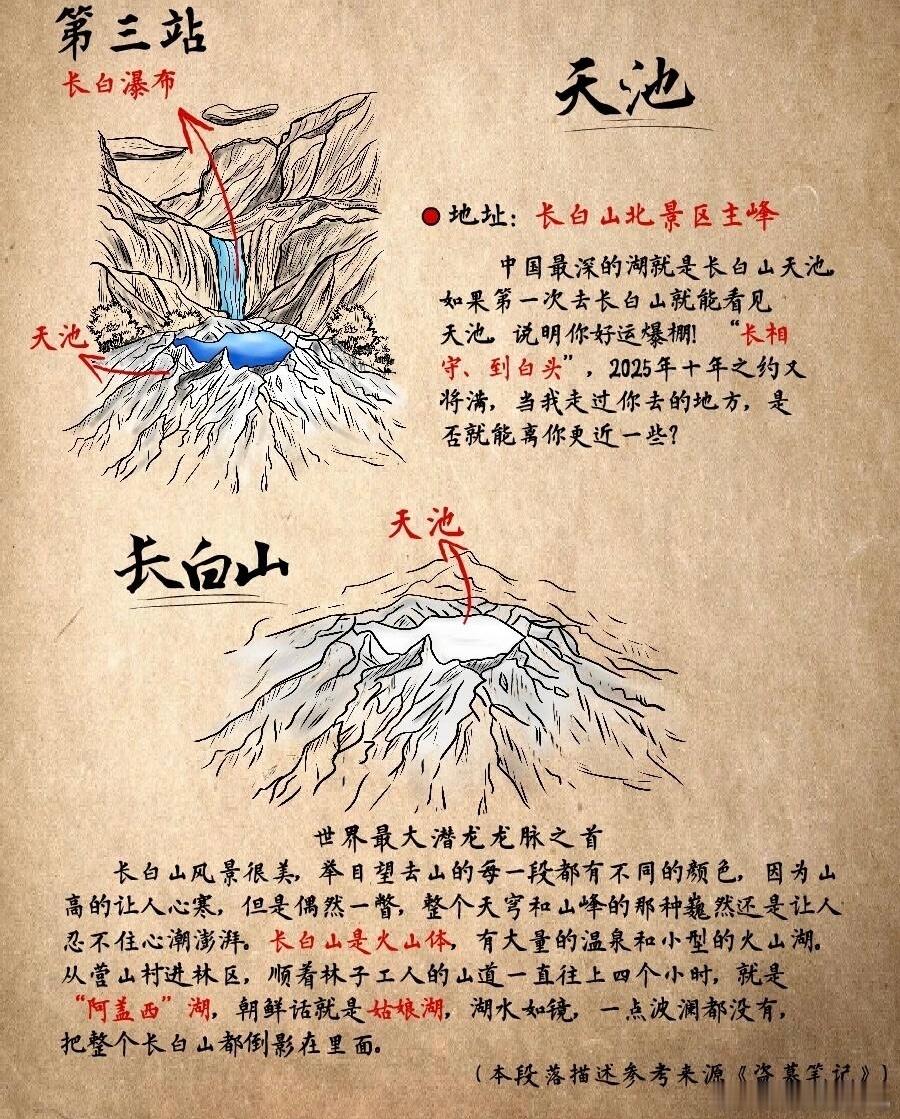 第三站
长白瀑布
天池
天池
地址：长白山北景区主峰
中国最深的湖就是长白山天池。
如果第一次去长白山就能看见
天池，说明你好运爆棚！“长相
守、到白头”，2025年十年之约又
将满，当我走过你去的地方，是
否就能离你更近一些？
长白山
天池
世界最大潜龙龙脉之首
长白山风景很美，举目望去山的每一段都有不同的颜色，因为山
高的让人心寒，但是偶然一瞥，整个天穹和山峰的那种巍然还是让人
忍不住心潮澎湃。长白山是火山体，有大量的温泉和小型的火山湖。
从营山村进林区，顺着林子工人的山道一直往上四个小时，就是
“阿盖西”湖，朝鲜话就是姑娘湖，湖水如镜，一点波澜都没有，
把整个长白山都倒影在里面。
（本段落描述参考来源《盗墓笔记》）